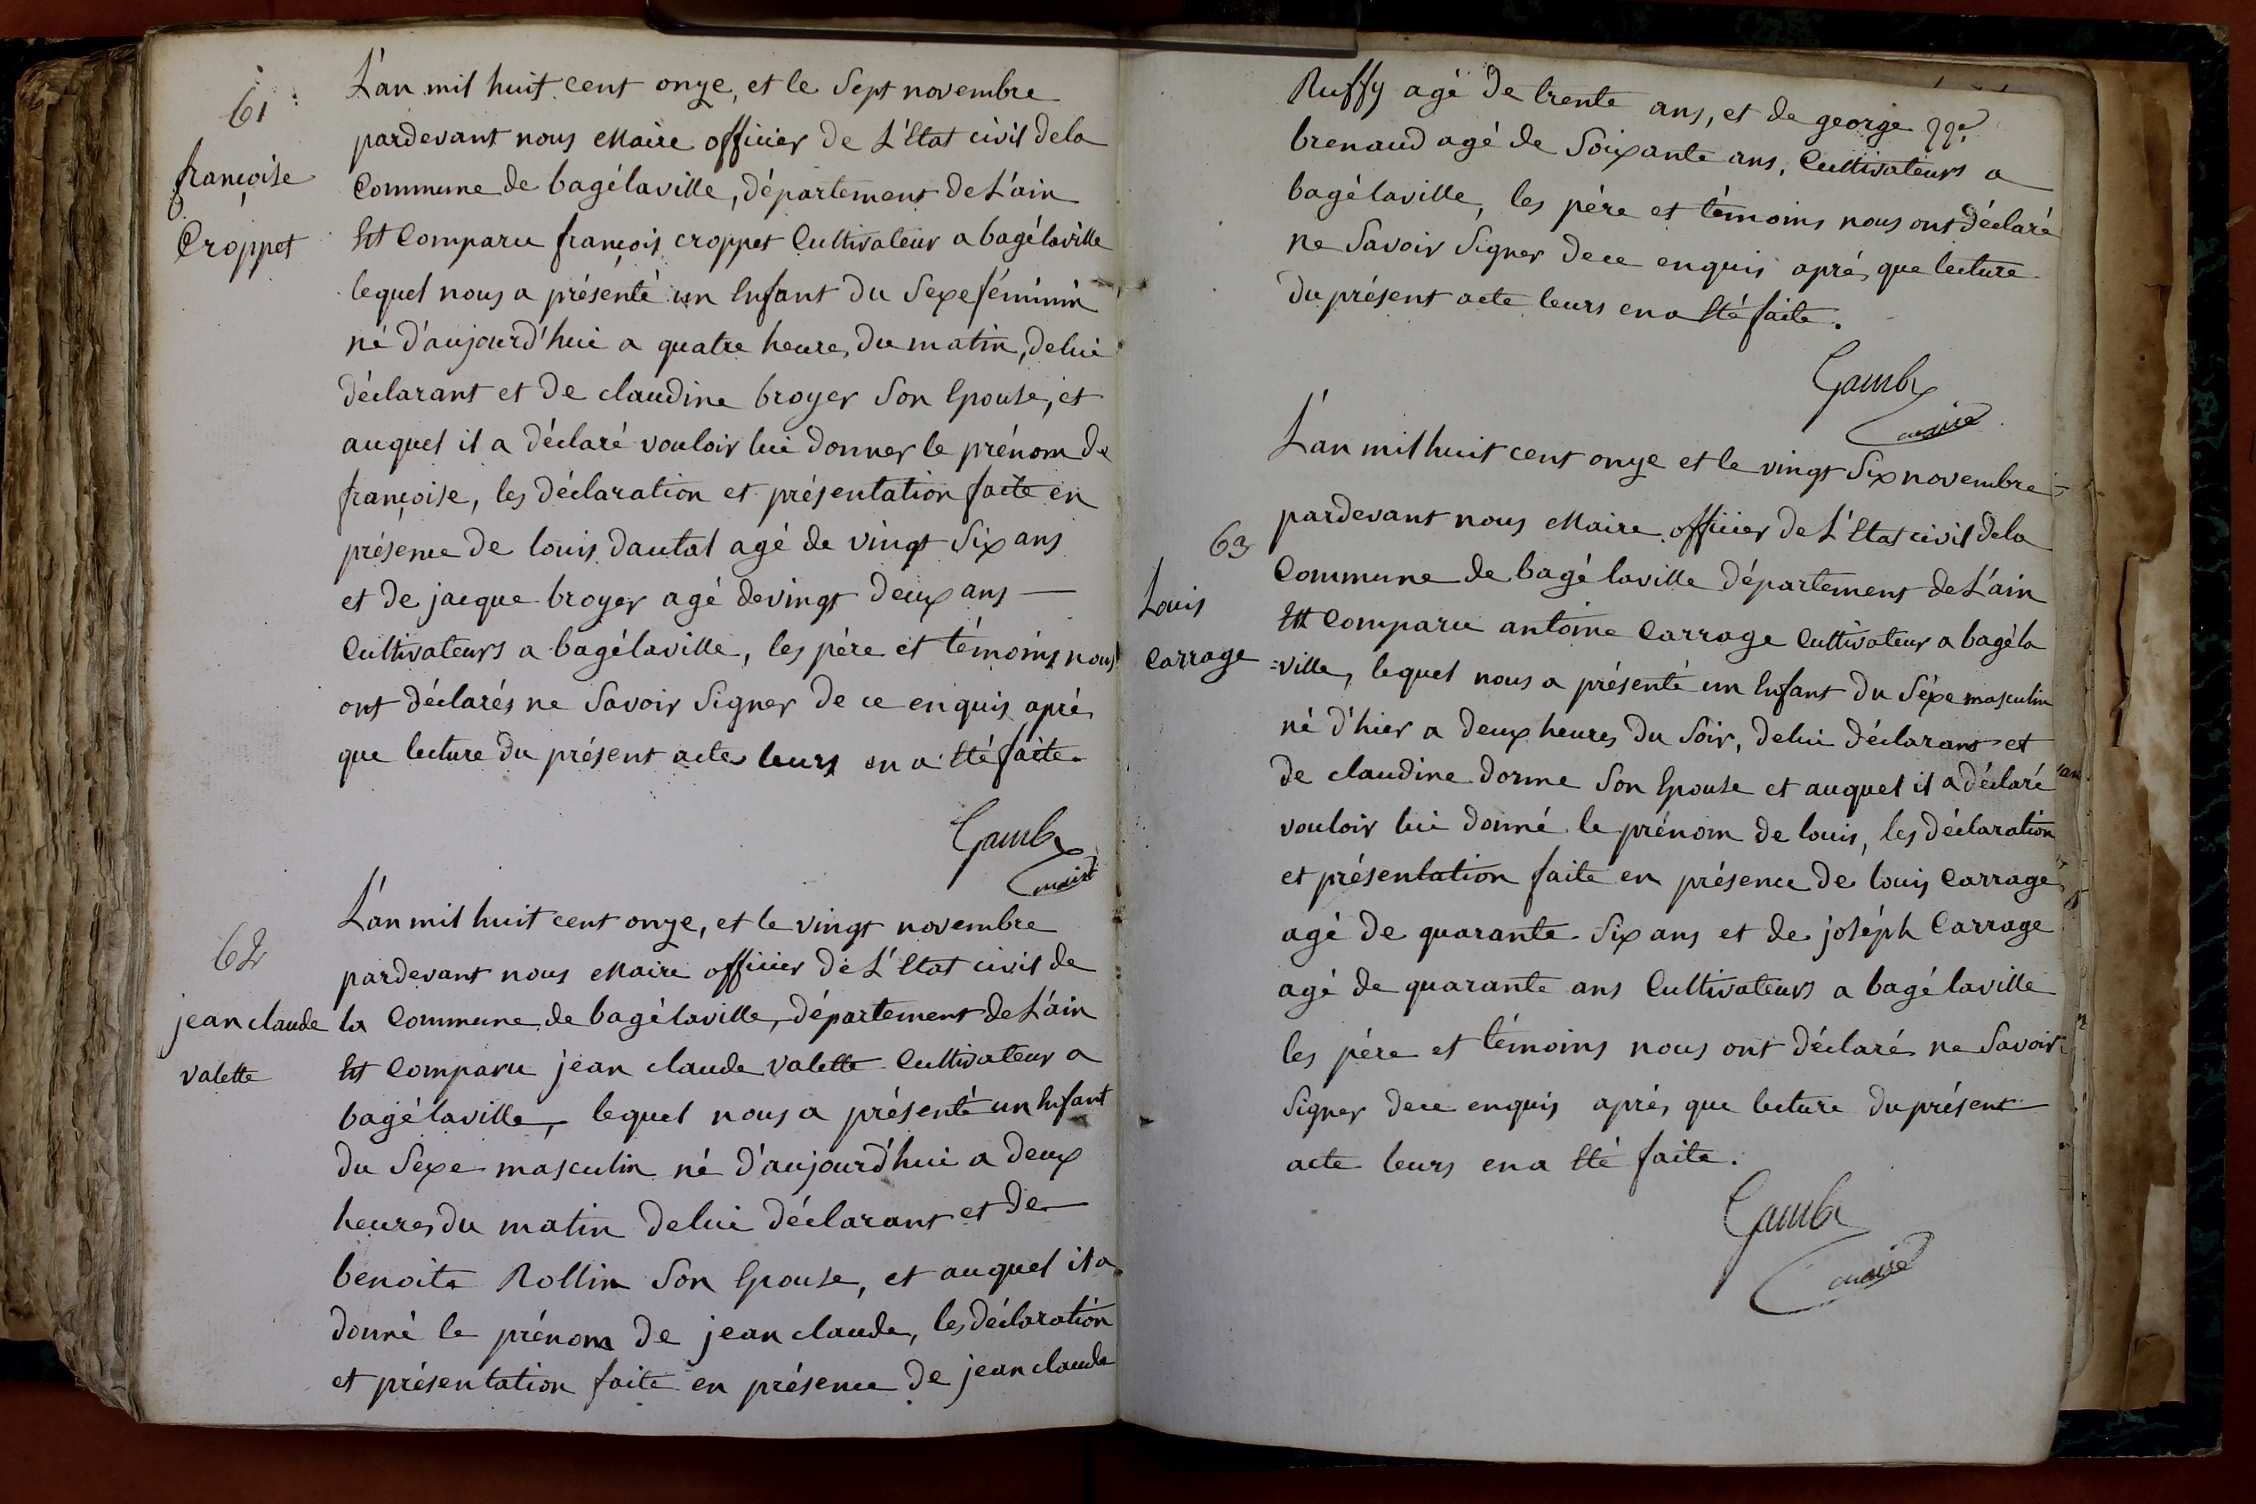 61
françoise
Croppet
L'an mil huit cent onze, et le Sept novembre
pardevant nous Maire officier de L'Etat civil dela
Commune de bagélaville, département de L'ain
Est Comparu françois croppet Cultivateur a bagélaville
lequel nous a présenté un Enfant du Sexe féminin
né d'aujourd'hui a quatre heures du matin, delui
déclarant et de claudine broyer Son Epouse, et
auquel il a déclaré vouloir lui donner le prénom de
françoise, les déclaration et présentation faite en
présence de louis dautal agé de vingt Six ans
et de jacque broyer agé de vingt deux ans —
Cultivateurs a bagélaville, les père et témoins nous
ont déclarés ne Savoir Signer de ce enquis après
que lecture du présent acte leurs en a Eté faite.
Gambe
maire
62
jean claude
valette
L'an mil huit cent onze, et le vingt novembre
pardevant nous Maire officier de L'Etat civil de
la Commune de bagélaville, département de L'ain
Est Comparu jean claude valette Cultivateur a
bagélaville, lequel nous a présenté un Enfant
du Sexe masculin né d'aujourd'hui a deux
heures du matin delui déclarant et de
benoite Rollin Son Epouse, et auquel il a
donné le prénom de jean claude, les déclaration
et présentation faite en présence de jean claude
Ruffy agé de trente ans, et de george
brenaud agé de Soixante ans, Cultivateurs a
bagélaville, les père et témoins nous ont déclaré
ne Savoir Signer dece enquis après que lecture
du présent acte leurs en a Eté faite.
Gambe
maire
63
Louis
Carrage
L'an mil huit cent onze et le vingt Six novembre
pardevant nous Maire officier de L'Etat civil dela
Commune de bagé laville département de L'ain
Est Comparu antoine Carrage Cultivateur a bagéla
=ville, lequel nous a présenté un Enfant du Séxe masculin
né d'hier a deux heures du Soir, delui déclarant et
de claudine dorme Son Epouse et auquel il a déclaré
vouloir lui donné le prénom de louis, les déclaration
et présentation faite en présence de louis Carrage
agé de quarante Six ans et de joséph Carrage
agé de quarante ans Cultivateurs a bagé laville
les père et témoins nous ont déclaré ne Savoir
Signer dece enquis après que lecture du présent
acte leurs en a Eté faite.
Gambe
maire